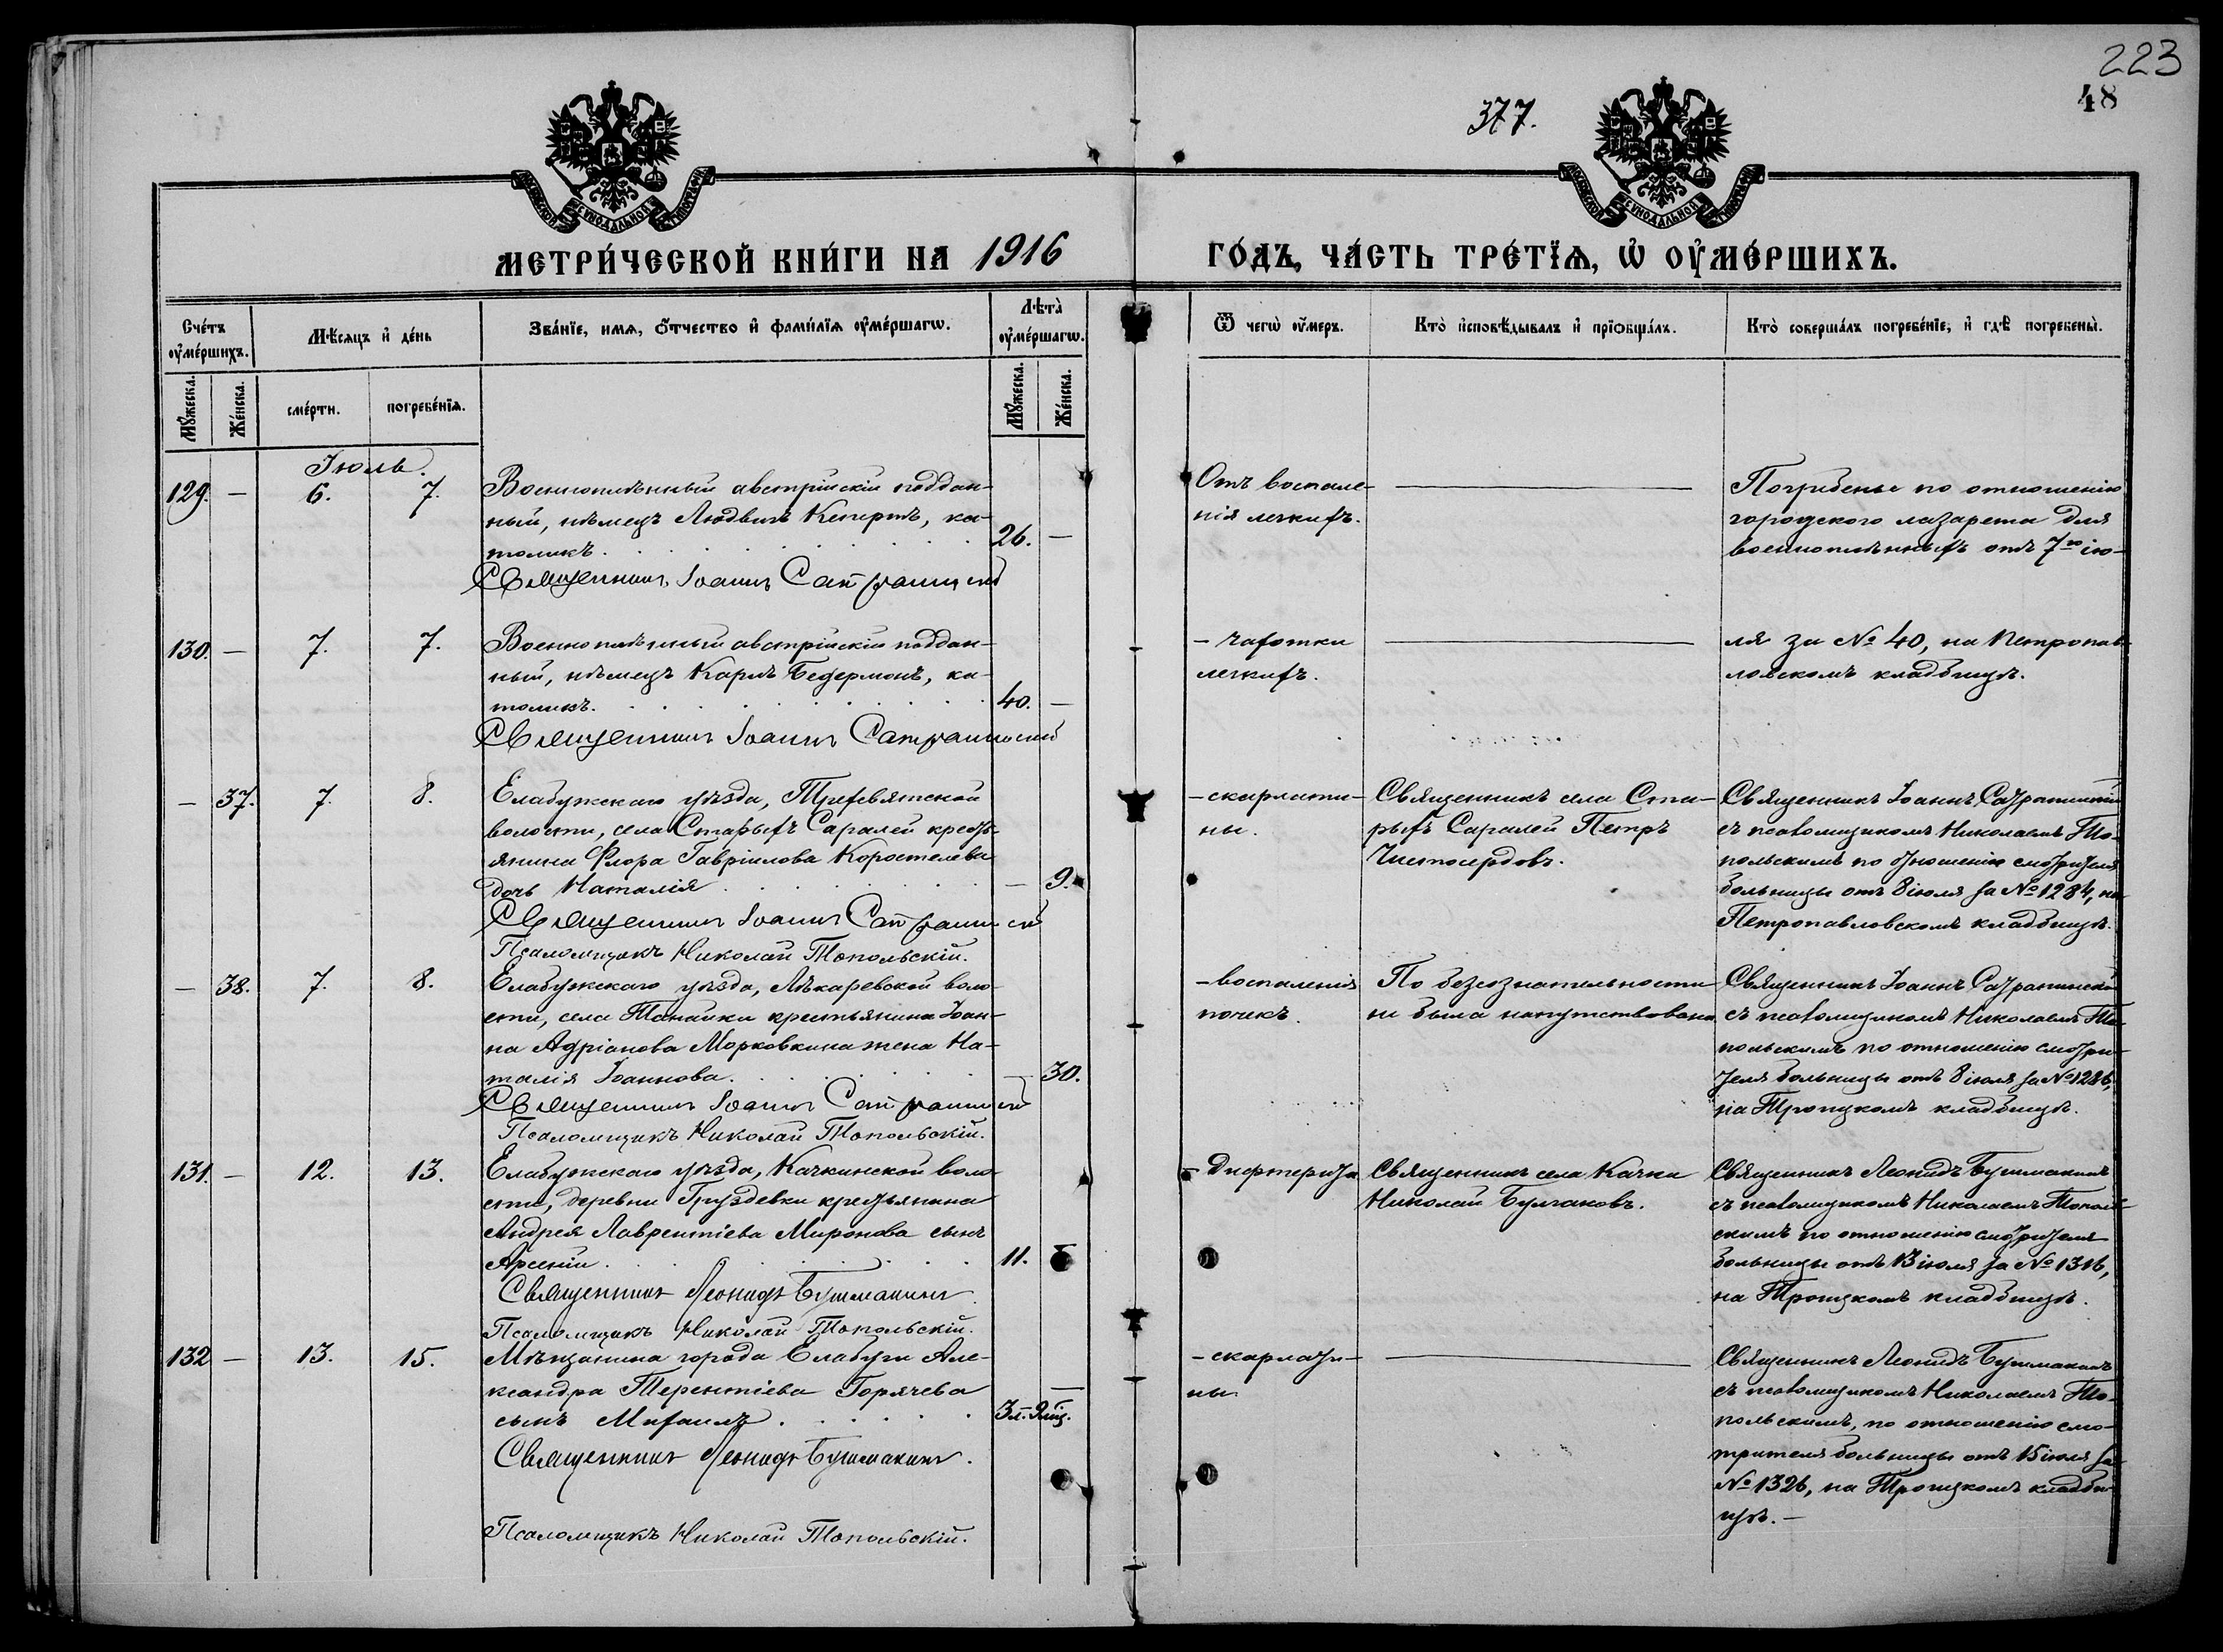 223
48
377.
МОСКОВСКОЙ СѴНОДАЛЬНОЙ ТИПОГРАФІИ
МОСКОВСКОЙ СѴНОДАЛЬНОЙ ТИПОГРАФІИ
МЕТРИ́ЧЕСКОЙ КНИ́ГИ НА 1916 ГО́ДЪ, ЧА́СТЬ ТРЕ́ТЇѦ, Ѡ҆ ОУ҆МЕ́РШИХЪ.
Счетъ оу҆ме́ршихъ.
Мѣ́сѧцъ и҆ де́нь
Зва́нїе, имѧ, ѻ҆́тчество и҆ фами́лїѧ оу҆ме́ршагѡ.
Лѣта̀ оу҆ме́ршагѡ.
Ѿ чегѡ̀ оу҆́меръ.
Кто̀ и҆сповѣ́дывалъ и҆ прїѡбща́лъ.
Кто̀ соверша́лъ погребе́нїе, и҆ гдѣ̀ погребены̀.
Мꙋ́жеска.
Же́нска.
сме́рти.
погребе́нїѧ.
Мꙋ́жеска.
Же́нска.
Іюль.
129. — 6. 7.
Военноплѣнный австрійскій поддан-
ный, нѣмецъ Людвигъ Кепертъ, ка-
толикъ. 26. —
Священникъ Іоаннъ Сатрапинскій
Отъ воспале-
нія легкихъ.
Погребены по отношенію
городского лазарета для
военноплѣнныхъ отъ 7го ію-
130. — 7. 7.
Военноплѣнный австрійскій поддан-
ный, нѣмецъ Карлъ Бедермонъ, ка-
толикъ. 40. —
Священникъ Іоаннъ Сатрапинскій
– чахотки
легкихъ.
ля за № 40, на Петропав-
ловскомъ кладбищѣ.
— 37. 7. 8.
Елабужскаго уѣзда, Трехсвятской
волости, села Старыхъ Саралей кресть-
янина Флора Гавріилова Коростелева
дочь Наталія — 9.
Священникъ Іоаннъ Сатрапинскій
Псаломщикъ Николай Топольскій.
– скарлати-
ны.
Священникъ села Ста-
рыхъ Саралей Петръ
Чистосердовъ.
Священникъ Іоаннъ Сатрапинскій
съ псаломщикомъ Николаемъ То-
польскимъ по отношенію смотрителя
больницы отъ 8 іюля за № 1284, на
Петропавловскомъ кладбищѣ.
— 38. 7. 8.
Елабужскаго уѣзда, Лѣкаревской воло-
сти, села Танайки крестьянина Іоан-
на Адріанова Морковкина жена На-
талія Іоаннова. — 30.
Священникъ Іоаннъ Сатрапинскій
Псаломщикъ Николай Топольскій.
– воспаленія
почекъ.
По безсознательности
не была напутствована
Священникъ Іоаннъ Сатрапинскій
съ псаломщикомъ Николаемъ То-
польскимъ по отношенію смотри-
теля больницы отъ 8 іюля за № 1286,
на Троицкомъ кладбищѣ.
131. — 12. 13.
Елабужскаго уѣзда, Качкинской воло-
сти, деревни Груздевки крестьянина
Андрея Лаврентіева Миронова сынъ
Арсеній. 11. —
Священникъ Леонидъ Бушмакинъ
Псаломщикъ Николай Топольскій.
– Дифтерита
Священникъ села Качки
Николай Булгаковъ.
Священникъ Леонидъ Бушмакинъ
съ псаломщикомъ Николаемъ Тополь-
скимъ по отношенію смотрителя
больницы отъ 13 іюля за № 1316,
на Троицкомъ кладбищѣ.
132 — 13. 15.
Мѣщанина города Елабуги Але-
ксандра Терентіева Горячева
сынъ Михаилъ. 3 л. 9 мѣс. —
Священникъ Леонидъ Бушмакинъ.
Псаломщикъ Николай Топольскій.
– скарлати-
ны
Священникъ Леонидъ Бушмакинъ
съ псаломщикомъ Николаемъ То-
польскимъ, по отношенію смо-
трителя больницы отъ 15 іюля за
№ 1326, на Троицкомъ кладби-
щѣ. —